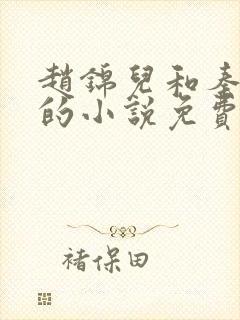 趙錦兒和秦
的小說免費
褚保田